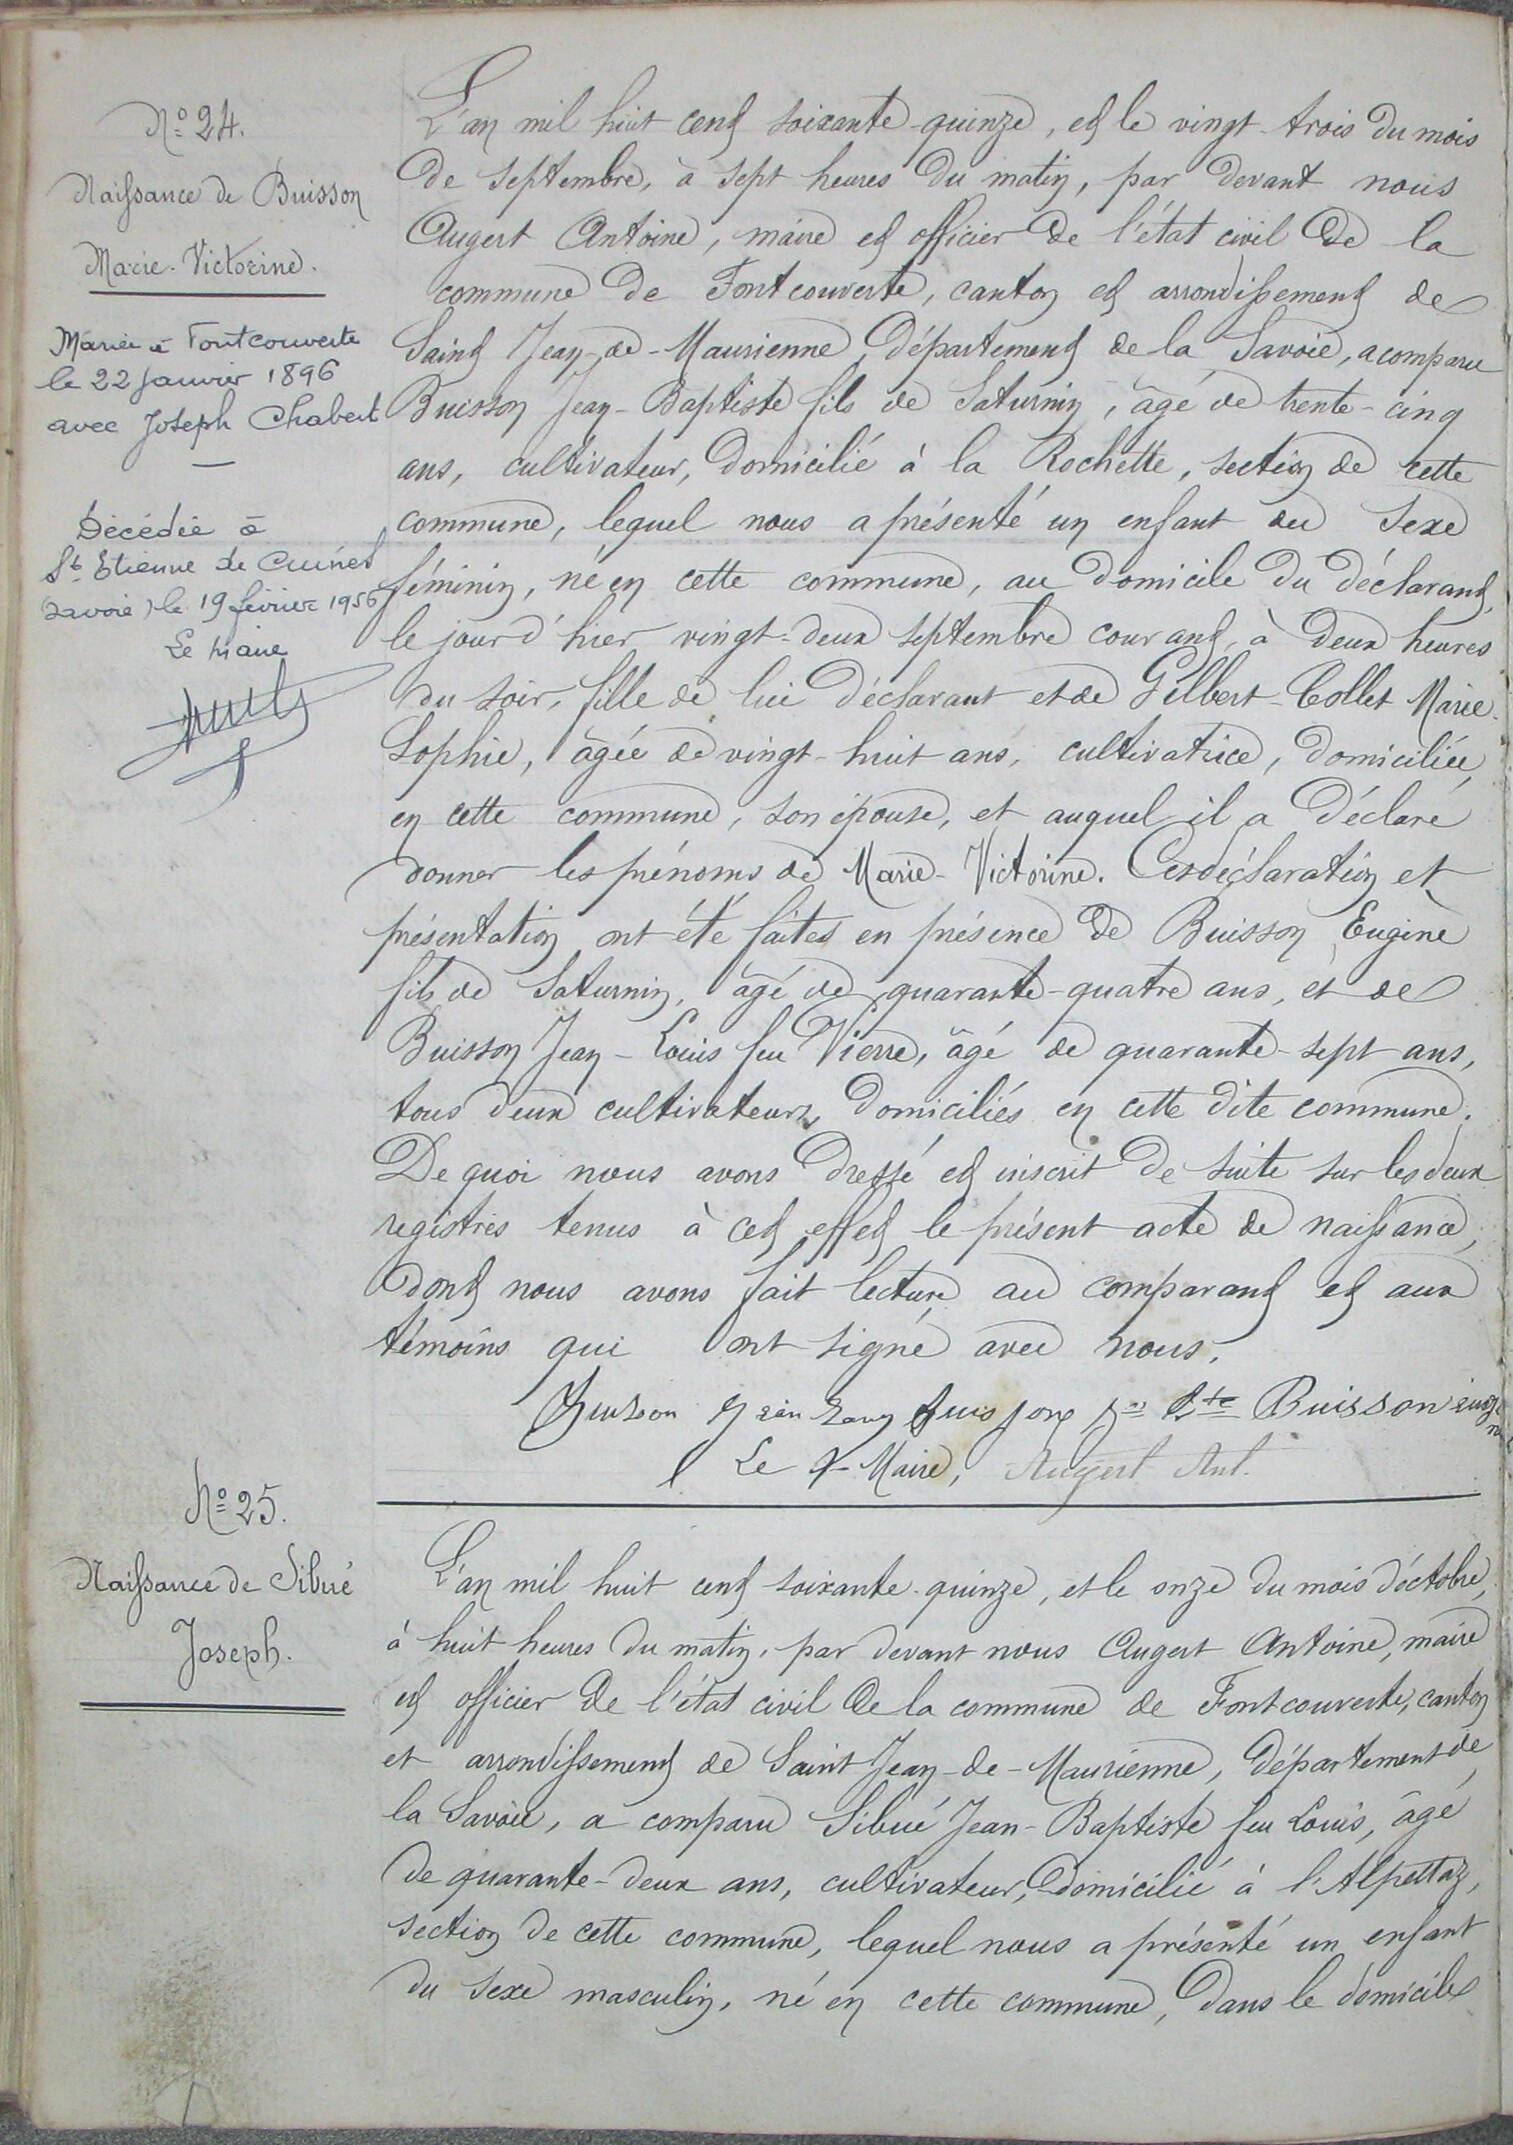 N° 24.
Naissance de Buisson
Marie-Victorine.
Mariée à Fontcouverte
le 22 janvier 1896
avec Joseph Chabert
Décédée à
St Etienne de Cuines
(Savoie) le 19 février 1956
Le Maire
L'an mil huit cent soixante-quinze, et le vingt-trois du mois
de septembre, à sept heures du matin, par devant nous
Augert Antoine, maire et officier de l'état civil de la
commune de Fontcouverte, canton et arrondissement de
Saint Jean-de-Maurienne, département de la Savoie, a comparu
Buisson Jean-Baptiste fils de Saturnin, âgé de trente-cinq
ans, cultivateur, domicilié à la Rochette, section de cette
commune, lequel nous a présenté un enfant du sexe
féminin, né en cette commune, au domicile du déclarant,
le jour d'hier vingt-deux septembre courant, à deux heures
du soir, fille de lui déclarant et de Gilbert-Collet Marie-
Sophie, âgée de vingt-huit ans, cultivatrice, domiciliée
en cette commune, son épouse, et auquel il a déclaré
donner les prénoms de Marie-Victorine. Ces déclaration et
présentation ont été faites en présence de Buisson Eugène
fils de Saturnin, âgé de quarante-quatre ans, et de
Buisson Jean-Louis feu Pierre, âgé de quarante-sept ans,
tous deux cultivateurs, domiciliés en cette dite commune.
De quoi nous avons dressé et inscrit de suite sur les deux
registres tenus à cet effet le présent acte de naissance,
dont nous avons fait lecture au comparant et aux
témoins qui ont signé avec nous.
Buisson Buisson Jn Bte Buisson
Le Maire, Augert Ant.
N° 25.
Naissance de Sibué
Joseph.
L'an mil huit cent soixante-quinze, et le onze du mois d'octobre,
à huit heures du matin, par devant nous Augert Antoine, maire
et officier de l'état civil de la commune de Fontcouverte, canton
et arrondissement de Saint Jean-de-Maurienne, département de
la Savoie, a comparu Sibué Jean-Baptiste feu Louis, âgé
de quarante-deux ans, cultivateur, domicilié à l'Alpettaz,
section de cette commune, lequel nous a présenté un enfant
du sexe masculin, né en cette commune, dans le domicile